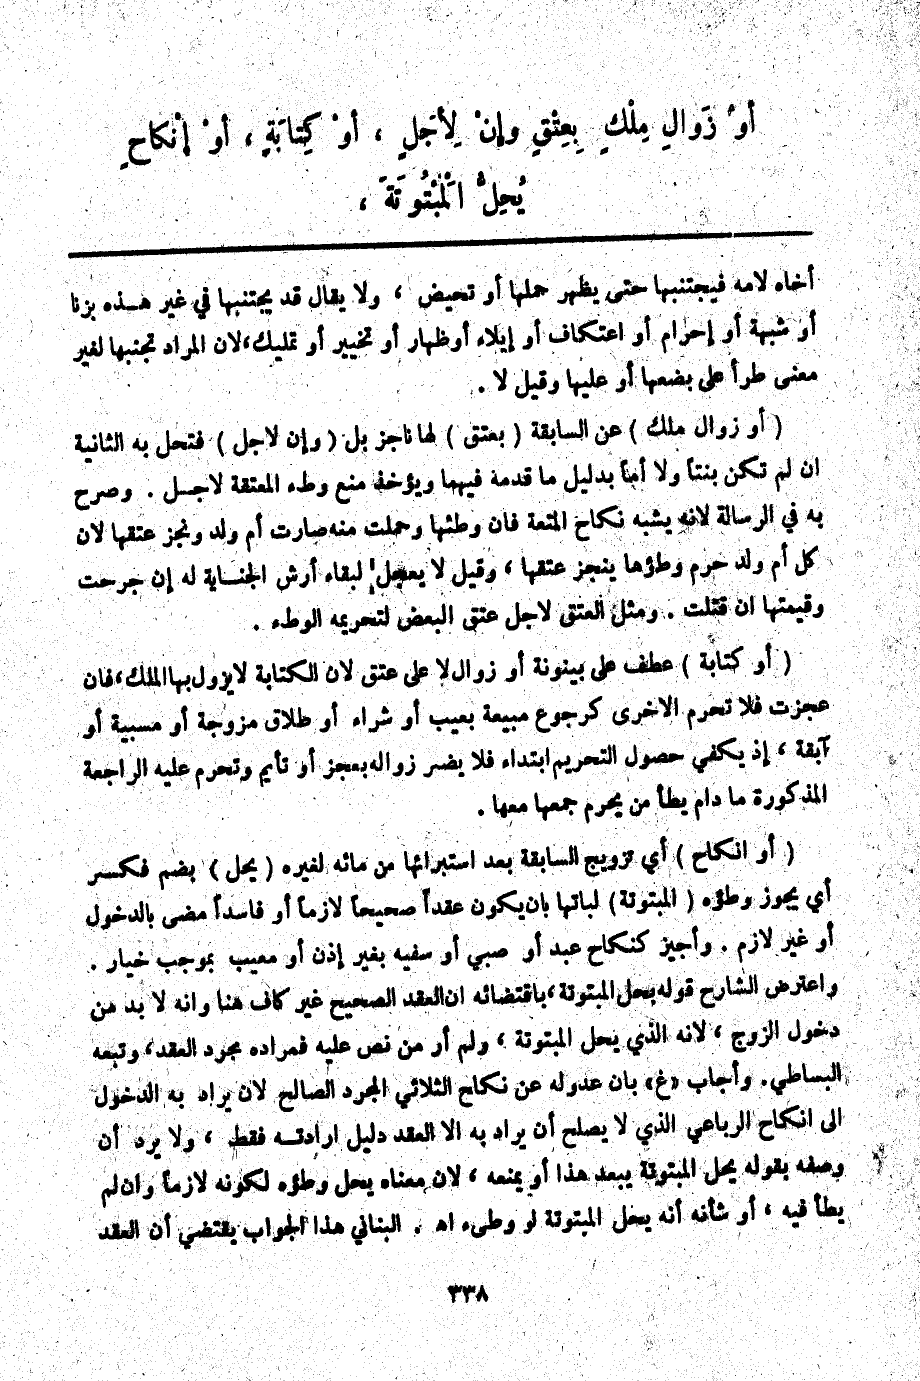 أوْ زَوالِ مِلْكٍ بِعِتْقٍ وإِنْ لِأَجَلٍ ، أوْ كِتابَةٍ ، أوْ إِنْكاحٍ
يُحِلُّ الْمَبْتُوتَةَ ،
أخاه لامه فيجتنبها حتى يظهر حملها أو تحيض ، ولا يقال قد يجتنبها في غير هـذه بزنا
أو شبهة أو إحرام أو اعتكاف أو إيلاء أوظهار أو تخيير أو تمليك،لان المراد تجنبها لغير
معنى طرأ على بضعها أو عليها وقيل لا .
( أو زوال ملك ) عن السابقة ( بعتق ) لها ناجز بل ( وإن لاجل ) فتحل به الثانية
ان لم تكن بنتاً ولا أماً بدليل ما قدمه فيهما ويؤخذ منع وطء المعتقة لاجـل . وصرح
به في الرسالة لانه يشبه نكاح المتعة فان وطئها وحملت منه صارت أم ولد ونجز عتقها لان
كل أم ولد حرم وطؤها ينجز عتقها ، وقيل لا يعجل لبقاء أرش الجنـاية له إن جرحت
وقيمتها ان قتلت . ومثل العتق لاجل عتق البعض لتحريمه الوطء .
( أو كتابة ) عطف على بينونة أو زوال لا على عتق لان الكتابة لايزول بها الملك،فان
عجزت فلا تحرم الاخرى كرجوع مبيعة بعيب أو شراء أو طلاق مزوجة أو مسبية أو
آبقة ، إذ يكفي حصول التحريم ابتداء فلا يضر زواله بعجز أو تأيم وتحرم عليه الراجعة
المذكورة ما دام يطأ من يحرم جمعها معها .
( أو انكاح ) أي تزويج السابقة بعد استبرائها من مائه لغيره ( يحل ) بضم فكسر
أي يجوز وطؤه ( المبتوتة ) لباتها بان يكون عقداً صحيحاً لازماً أو فاسداً مضى بالدخول
أو غير لازم . وأجيز كنكاح عبد أو صبي أو سفيه بغير إذن أو معيب بموجب خيار .
واعترض الشارح قوله يحل المبتوتة،باقتضائه ان العقد الصحيح غير كاف هنا وانه لا بد من
دخول الزوج ، لانه الذي يحل المبتوتة ، ولم أر من نص عليه فمراده مجرد العقد، وتبعه
البساطي. وأجاب «غ» بان عدوله عن نكاح الثلاثي المجرد الصالح لان يراد به الدخول
الى انكاح الرباعي الذي لا يصلح أن يراد به الا العقد دليل ارادتـه فقط ، ولا يرد أن
وصفه بقوله يحل المبتوتة يبعد هذا أو يمنعه ، لان معناه يحل وطؤه لكونه لازماً وان لم
يطأ فيه ، أو شأنه أنه يحل المبتوتة لو وطىء اهـ . البناني هذا الجواب يقتضي أن العقد
٣٣٨